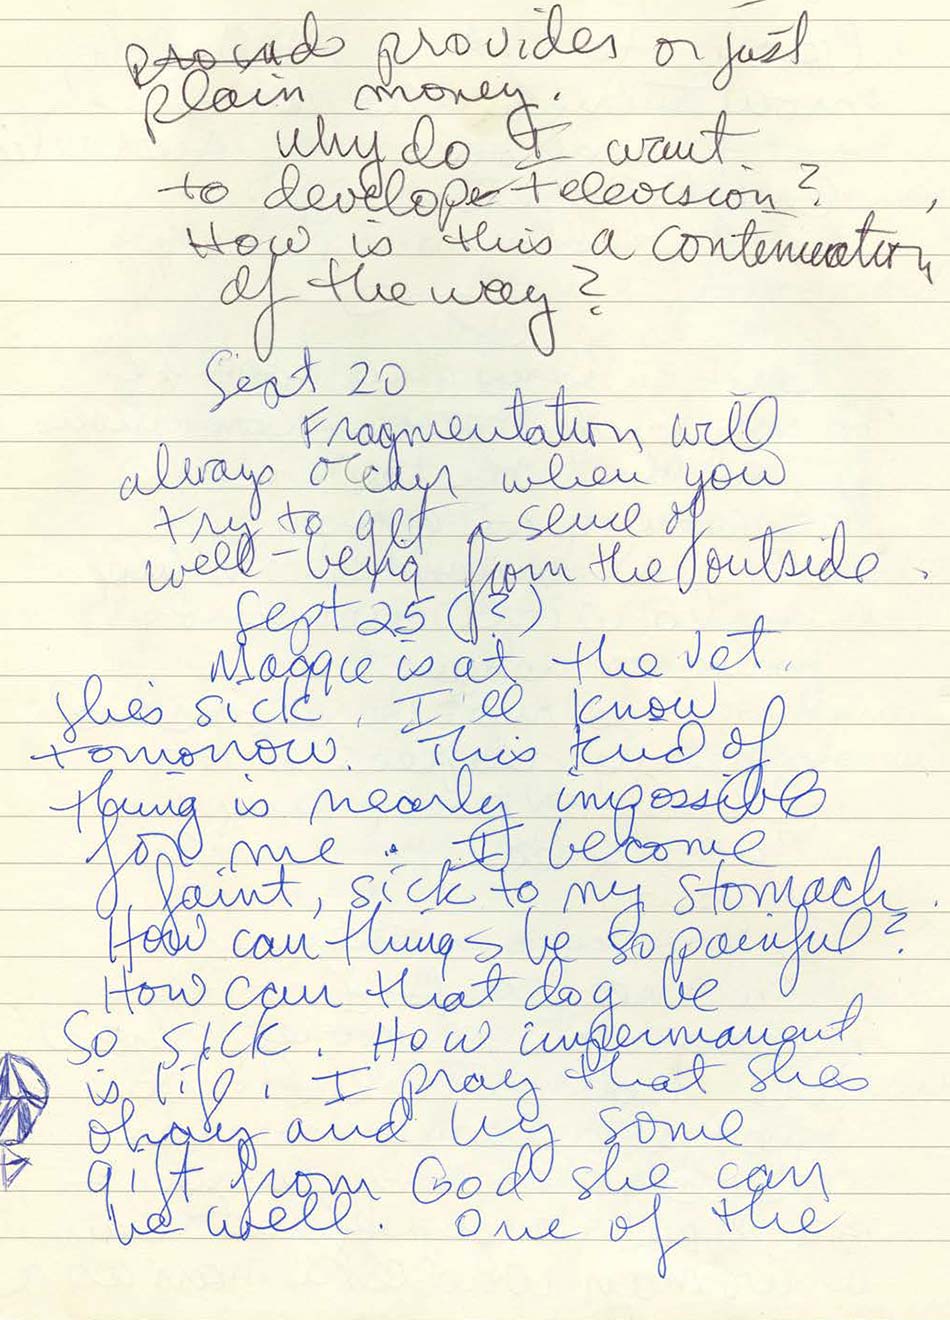 provides or just
plain money.
Why do I want
to develope television?
How is this a contenuation
of the way?
Sept 20
Fragmentation will
always occur when you
try to get a sense of
well-being from the outside.
Sept 25 (?)
Maggie is at the vet.
She's sick. I'll know
tomorrow. This kind of
thing is nearly impossible
for me. I become
faint, sick to my stomach.
How can things be so painful?
How can that dog be
so sick. How impermanent
is life. I pray that she's
okay and by some
gift from God she can
be well. One of the